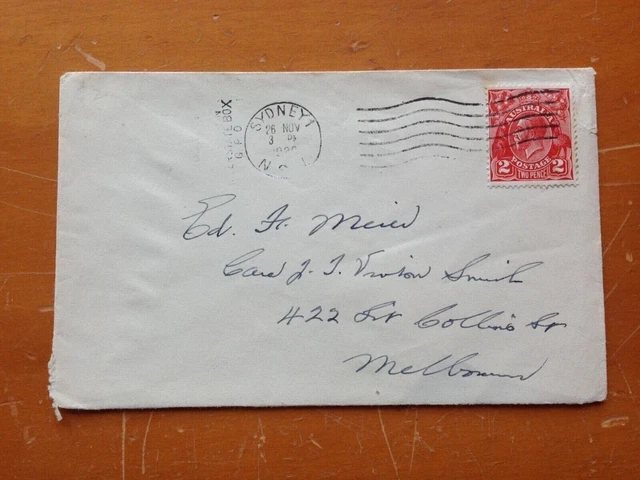 BOX
G.P.O
SYDNEY 1
26 NOV
3 P
N
AUSTRALIA
POSTAGE
2 2
TWO PENCE
Ed. H. Meier
Care J. T. Smith
422 Collins St
Melbourne